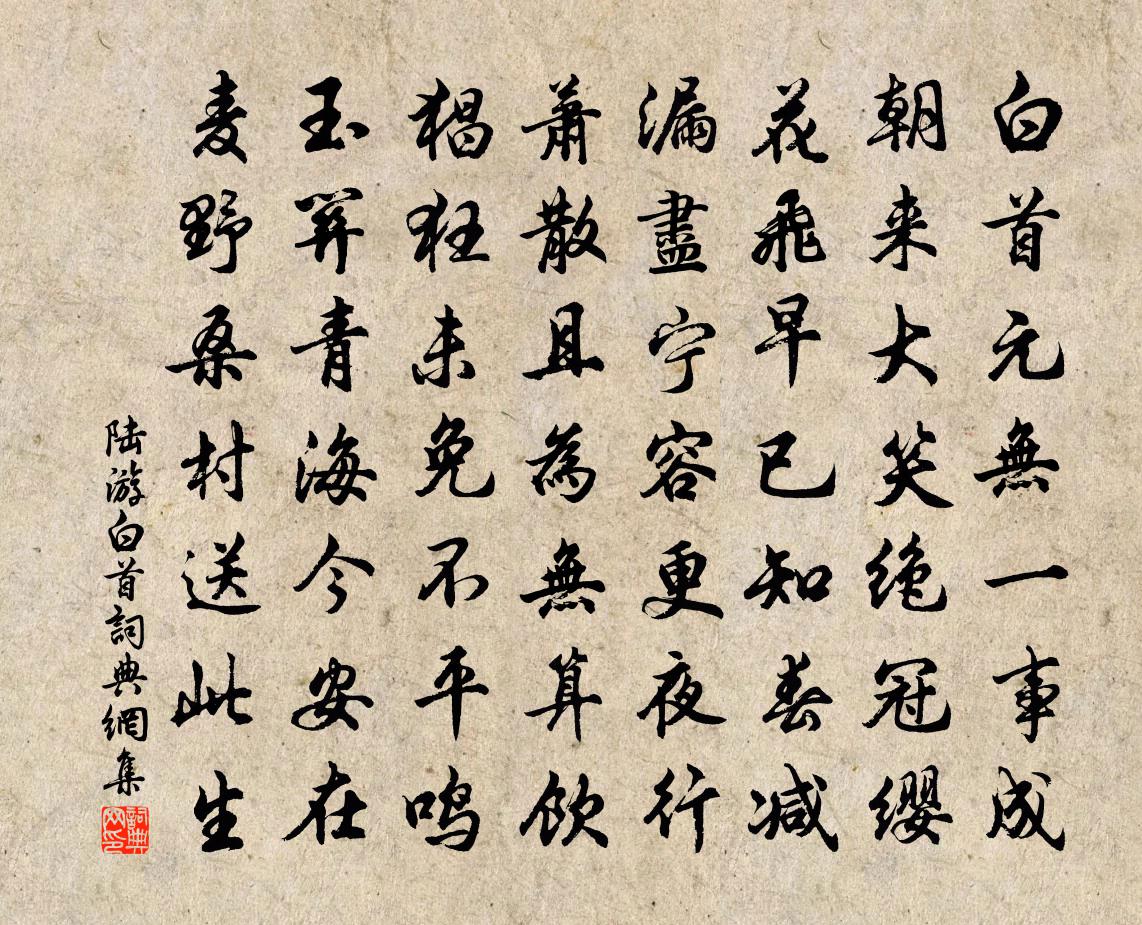 白首元無一事成
朝来大笑绝冠缨
花飛早已知春减
漏盡宁容更夜行
萧散且為無算飲
猖狂未免不平鸣
玉關青海今安在
麦野桑村送此生
陆游白首詞典網集
詞典网印